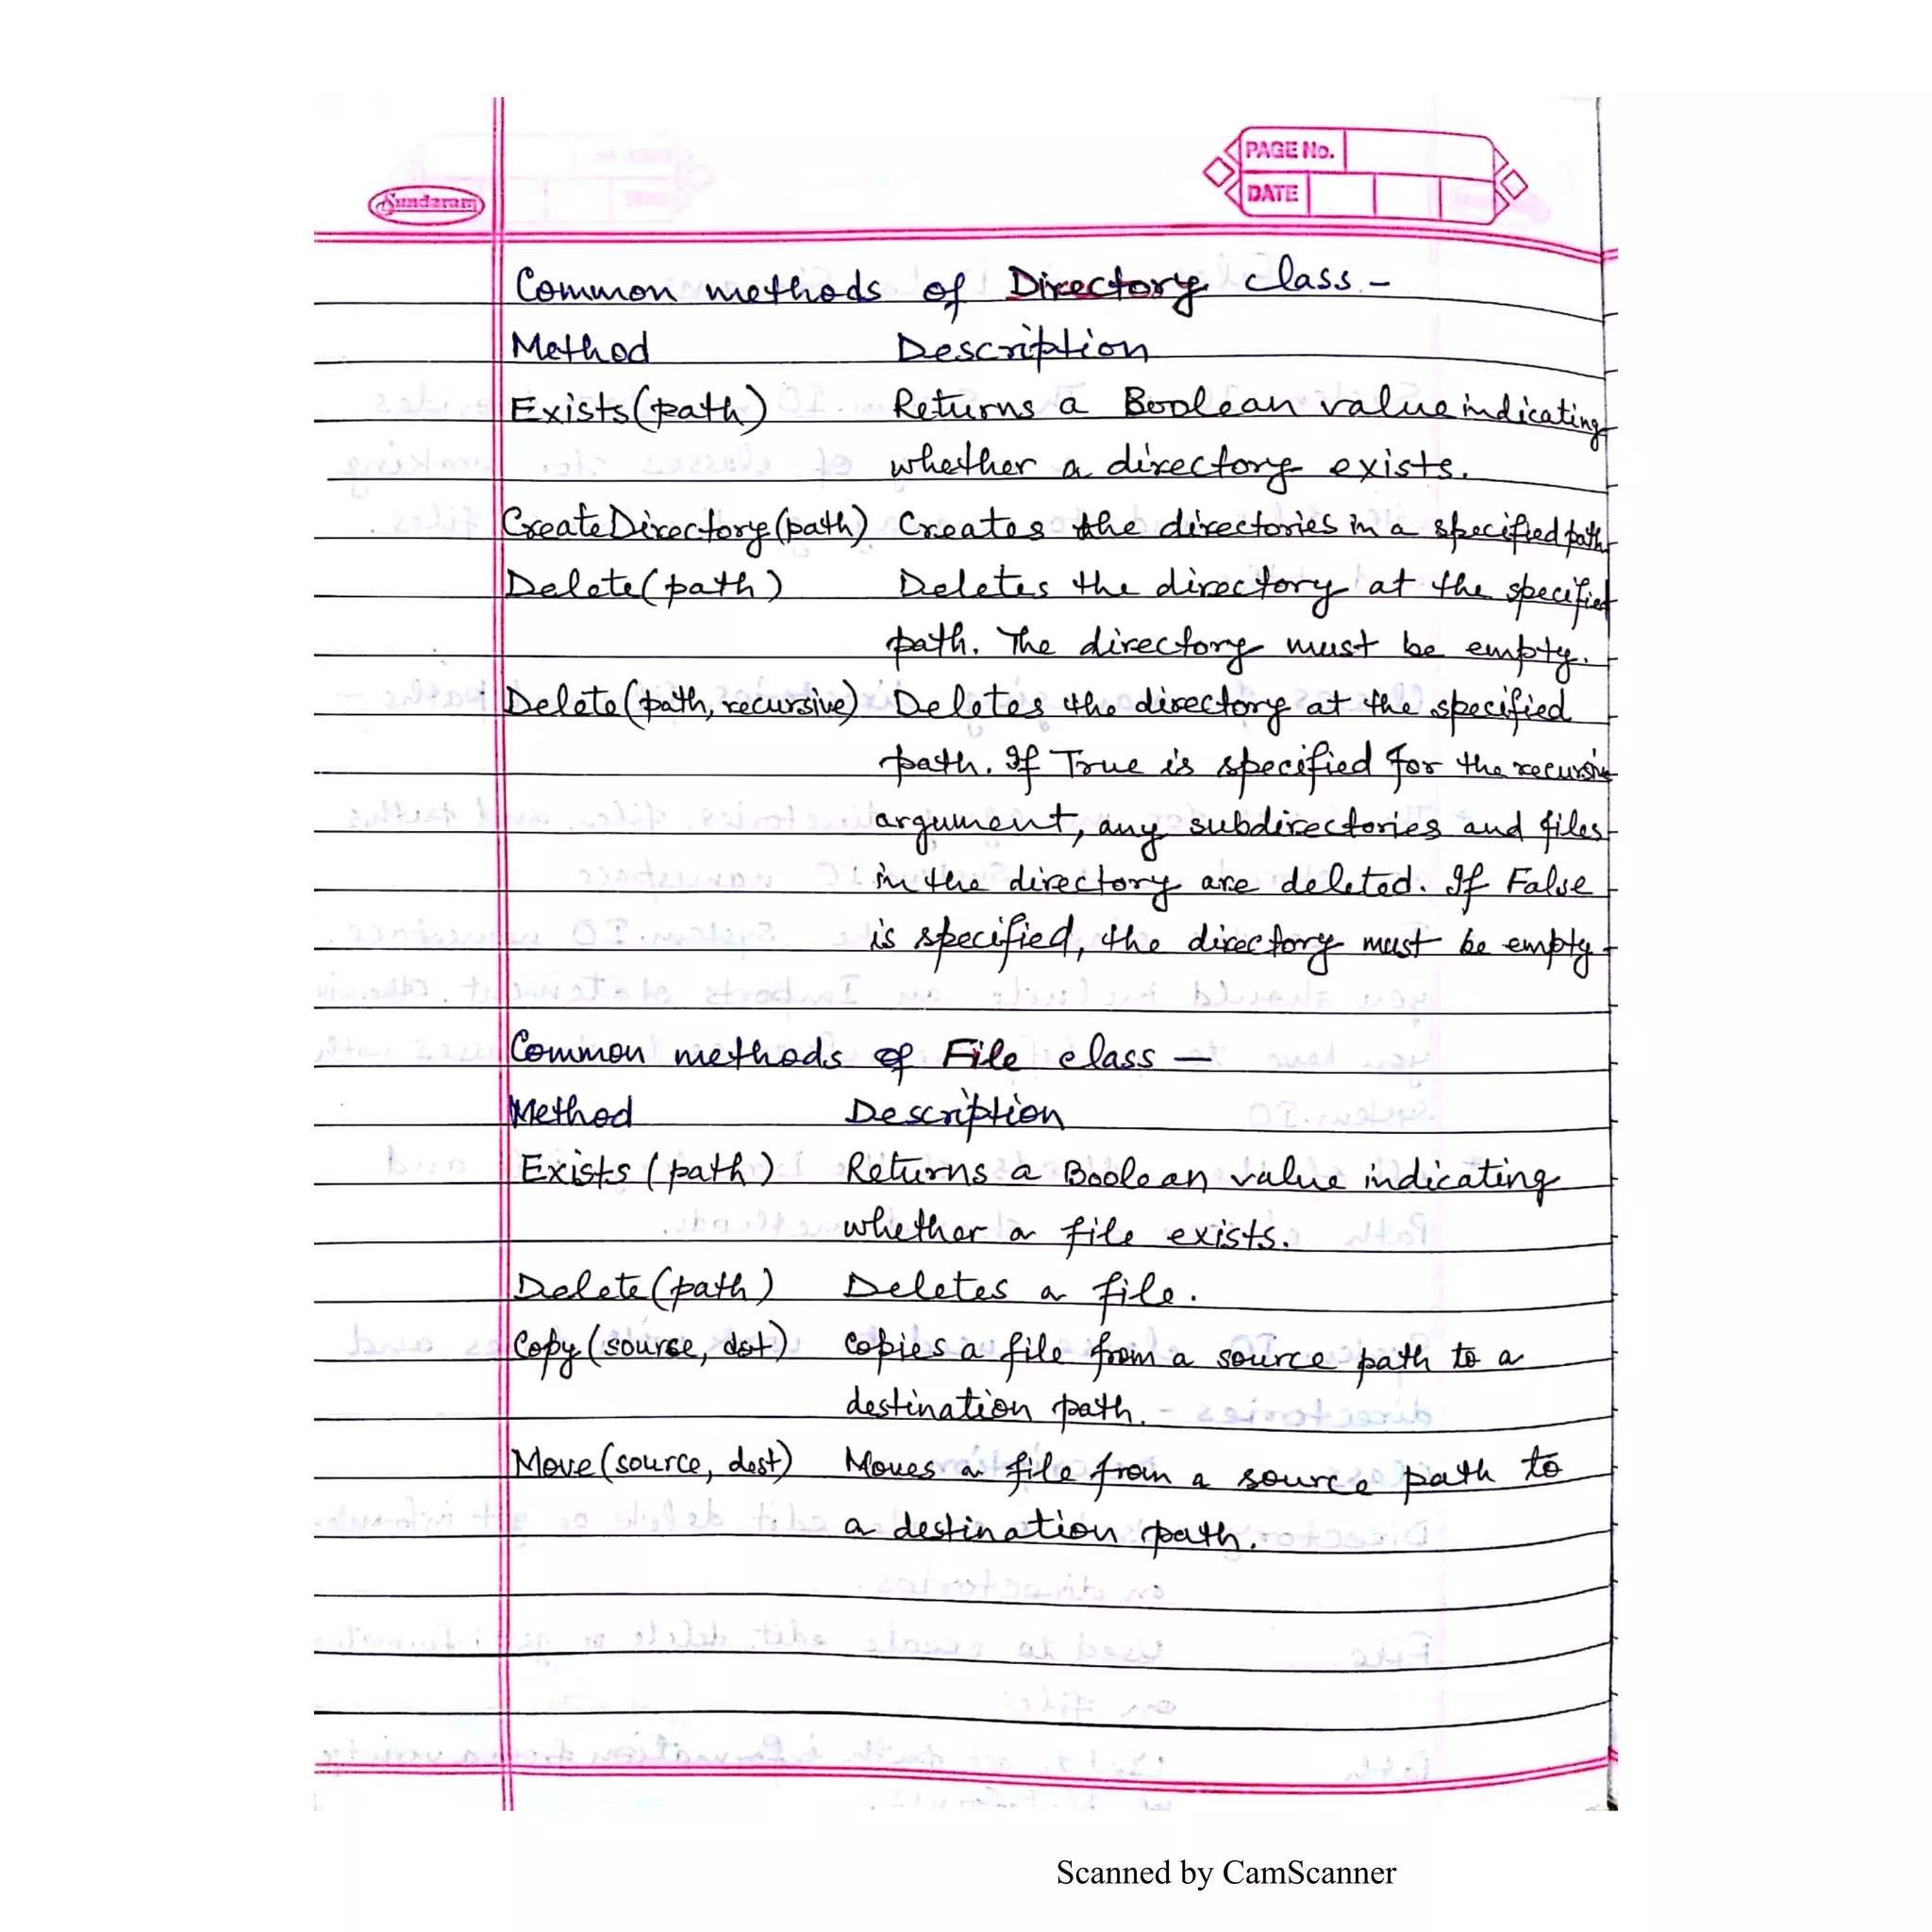 Sundaram
PAGE No.
DATE
Common methods of Directory class -
Method Description
Exists(path) Returns a Boolean value indicating
whether a directory exists.
CreateDirectory(path) Creates the directories in a specified path
Delete(path) Deletes the directory at the specified
path. The directory must be empty.
Delete(path, recursive) Deletes the directory at the specified
path. If True is specified for the recursive
argument, any subdirectories and files
in the directory are deleted. If False
is specified, the directory must be empty
Common methods of File class -
Method Description
Exists (path) Returns a Boolean value indicating
whether a file exists.
Delete(path) Deletes a file.
Copy(source, dst) Copies a file from a source path to a
destination path.
Move(source, dest) Moves a file from a source path to
a destination path.
Scanned by CamScanner